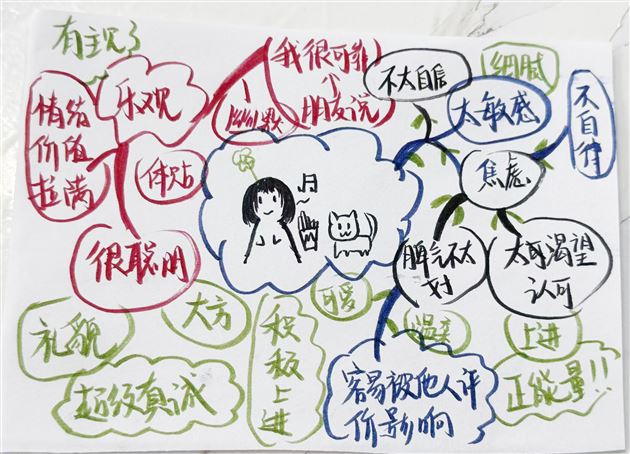 有主见
乐观
情绪
价值
拉满
体贴
很聪明
幽默
我很可靠
朋友说
不太自信
细腻
太敏感
不自律
焦虑
脾气不太
好
太可渴望
认可
可爱
温柔
上进
大方
礼貌
超级真诚
积极上进
容易被他人评
价影响
正能量!!